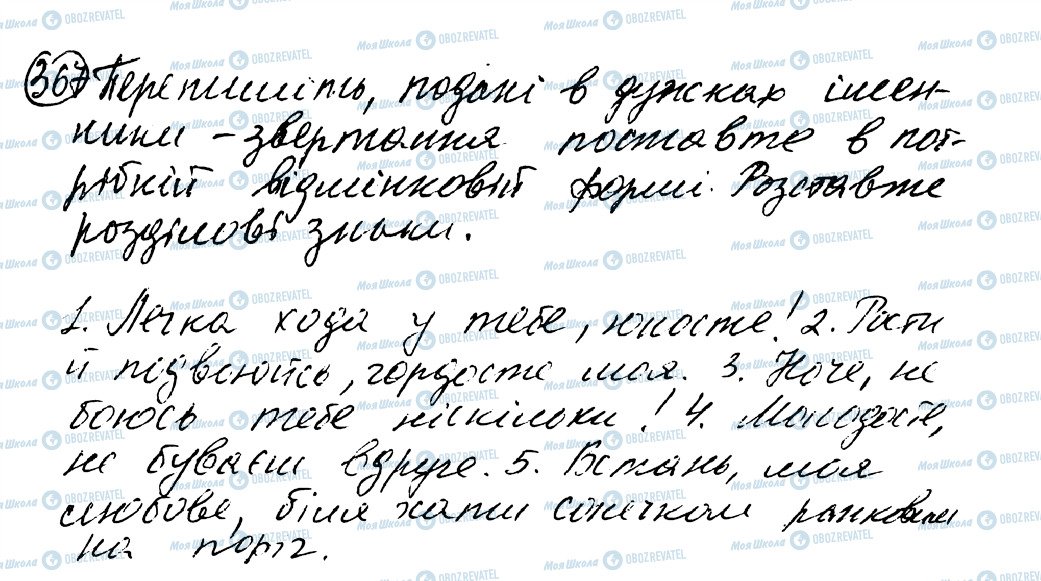 367 Перепишіть, подані в дужках імен-
ники - звертання поставте в пот-
рібній відмінковій формі. Розставте
розділові знаки.
1. Легка хода у тебе, юносте! 2. Рости
й подвоюйсь, гордосте моя. 3. Ноче, не
боюсь тебе ніскільки! 4. Молодосте,
не буваєш вдруге. 5. Встань, моя
любове, біля хати сонечком ранковим
на поріг.
Моя Школа OBOZREVATEL